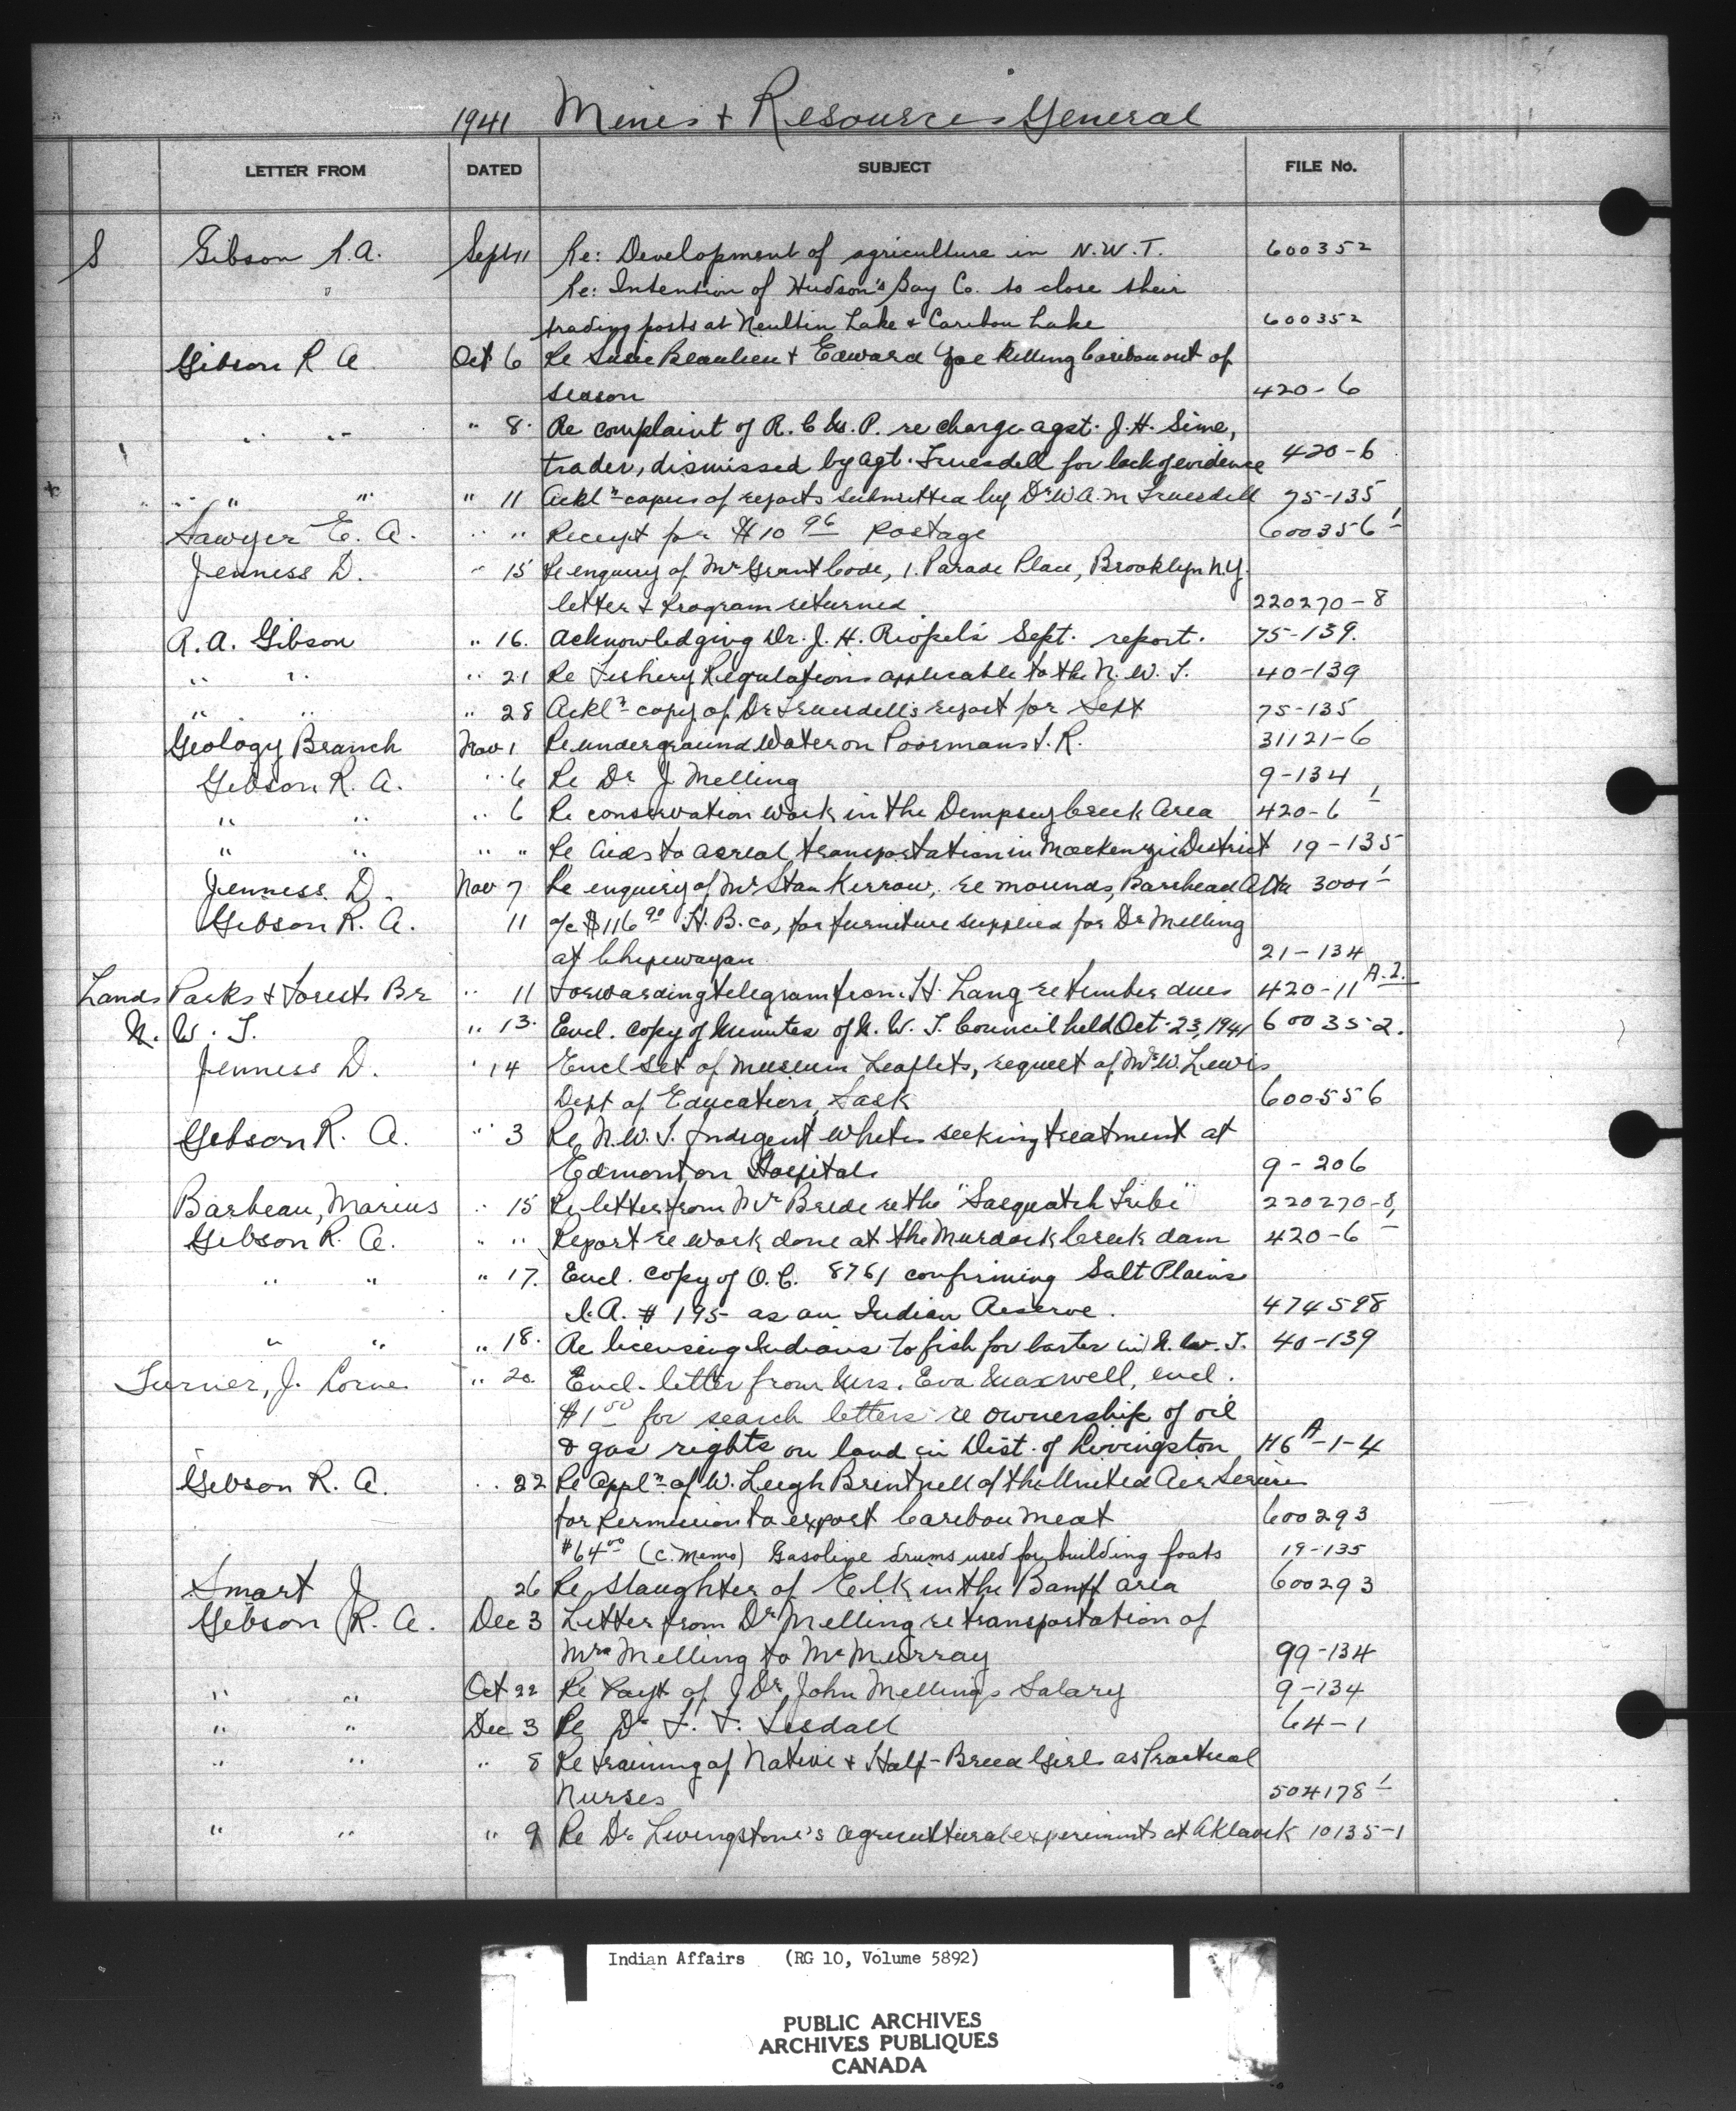 1941 Mines + Resources General
LETTER FROM DATED SUBJECT FILE No.
S Gibson R.A. Sept 11 Re: Development of agriculture in N.W.T. 600352
" Re: Intention of Hudson's Bay Co. to close their
trading posts at Neultin Lake & Caribou Lake 600352
Gibson R A Oct 6 Re Susie Beaulieu + Edward Yae killing Caribou out of
season 420-6
" " " 8. Re complaint of R.C.M.P. re charge agst. J.H. Sime,
trader, dismissed by Agt. Truesdell for lack of evidence 420-6
" " " 11 Ackl'n copies of reports submitted by Dr W.A.M Truesdell 75-135
Sawyer E. A. " " Receipt for $10 96 Postage 600356-1
Jenness D. " 15 Re enquiry of Mr Grant Code, 1. Parade Place, Brooklyn N.Y.
letter & program returned 220270-8
R.A. Gibson " 16. Acknowledging Dr. J. H. Riopel's Sept. report. 75-139.
" " " 21 Re Fishery Regulations applicable to the N.W.T. 40-139
" " " 28 Ackl'n copy of Dr Truesdell's report for Sept 75-135
Geology Branch Nov 1 Re underground water on Poormans I.R. 31121-6
Gibson R. A. " 6 Re Dr J Melling 9-134
" " " 6 Re conservation work in the Dempsey Creek Area 420-6-1
" " " " Re Aids to aereal transportation in Mackenzie District 19-135
Jenness D. Nov 7 Re enquiry of Mr Stan Kerrow, re mounds, Barrhead Alta 3001-1
Gibson R. A. 11 a/c $116 90 H.B.co, for furniture supplied for Dr Melling
at Chipewayan 21-134
Lands Parks & Forests Br " 11 Forwarding telegram from H. Lang re timber dues 420-11 A.2.
N. W. T. " 13. Encl. copy of Minutes of N.W.T. Council held Oct. 23, 1941 600352.
Jenness D. " 14 Encl set of Museum Leaflets, request of Mr W. Lewis
Dept of Education, Sask 600556
Gibson R. A. " 3 Re N.W.T. Indigent Whites seeking treatment at
Edmonton Hospitals 9-206
Barbeau, Marius " 15 Re letter from McBride re the "Sasquatch Tribe" 220270-8,
Gibson R. A. " " Report re work done at the Murdock Creek dam 420-6-
" " " 17. Encl. copy of O.C. 8761 confirming Salt Plains
I.A. # 195 as an Indian Reserve. 474598
" " " 18. Re licensing Indians to fish for barter in N.W.T. 40-139
Turner, J. Lorne " 20 Encl. letter from Mrs. Eva Maxwell, encl.
$1 00 for search letters re ownership of oil
& gas rights on land in Dist. of Livingston H6 A-1-4
Gibson R. A. " 22 Re Appl'n of W. Leigh Brintnell of the United Air Services
for permission to export Caribou Meat 600293
$64 00 (C. Memo) Gasoline drums used for building foats 19-135
Smart J 26 Re Slaughter of Elk in the Banff area 600293
Gibson R. A. Dec 3 Letter from Dr Melling re transportation of
Mrs Melling to McMurray 99-134
" " Oct 22 Re Payt of Dr. John Mellings Salary 9-134
" " Dec 3 Re Dr F. F. Tisdall 64-1
" " " 8 Re training of Native & Half-Breed Girls as Practical
Nurses 504178-1
" " " 9 Re Dr Livingstone's agricultural experiments at Aklavik 10135-1
Indian Affairs (RG 10, Volume 5892)
PUBLIC ARCHIVES
ARCHIVES PUBLIQUES
CANADA